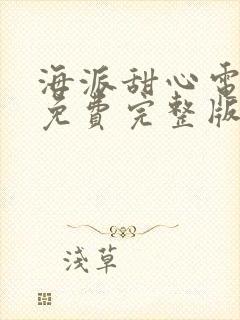 海派甜心電
免費完整版
淺草